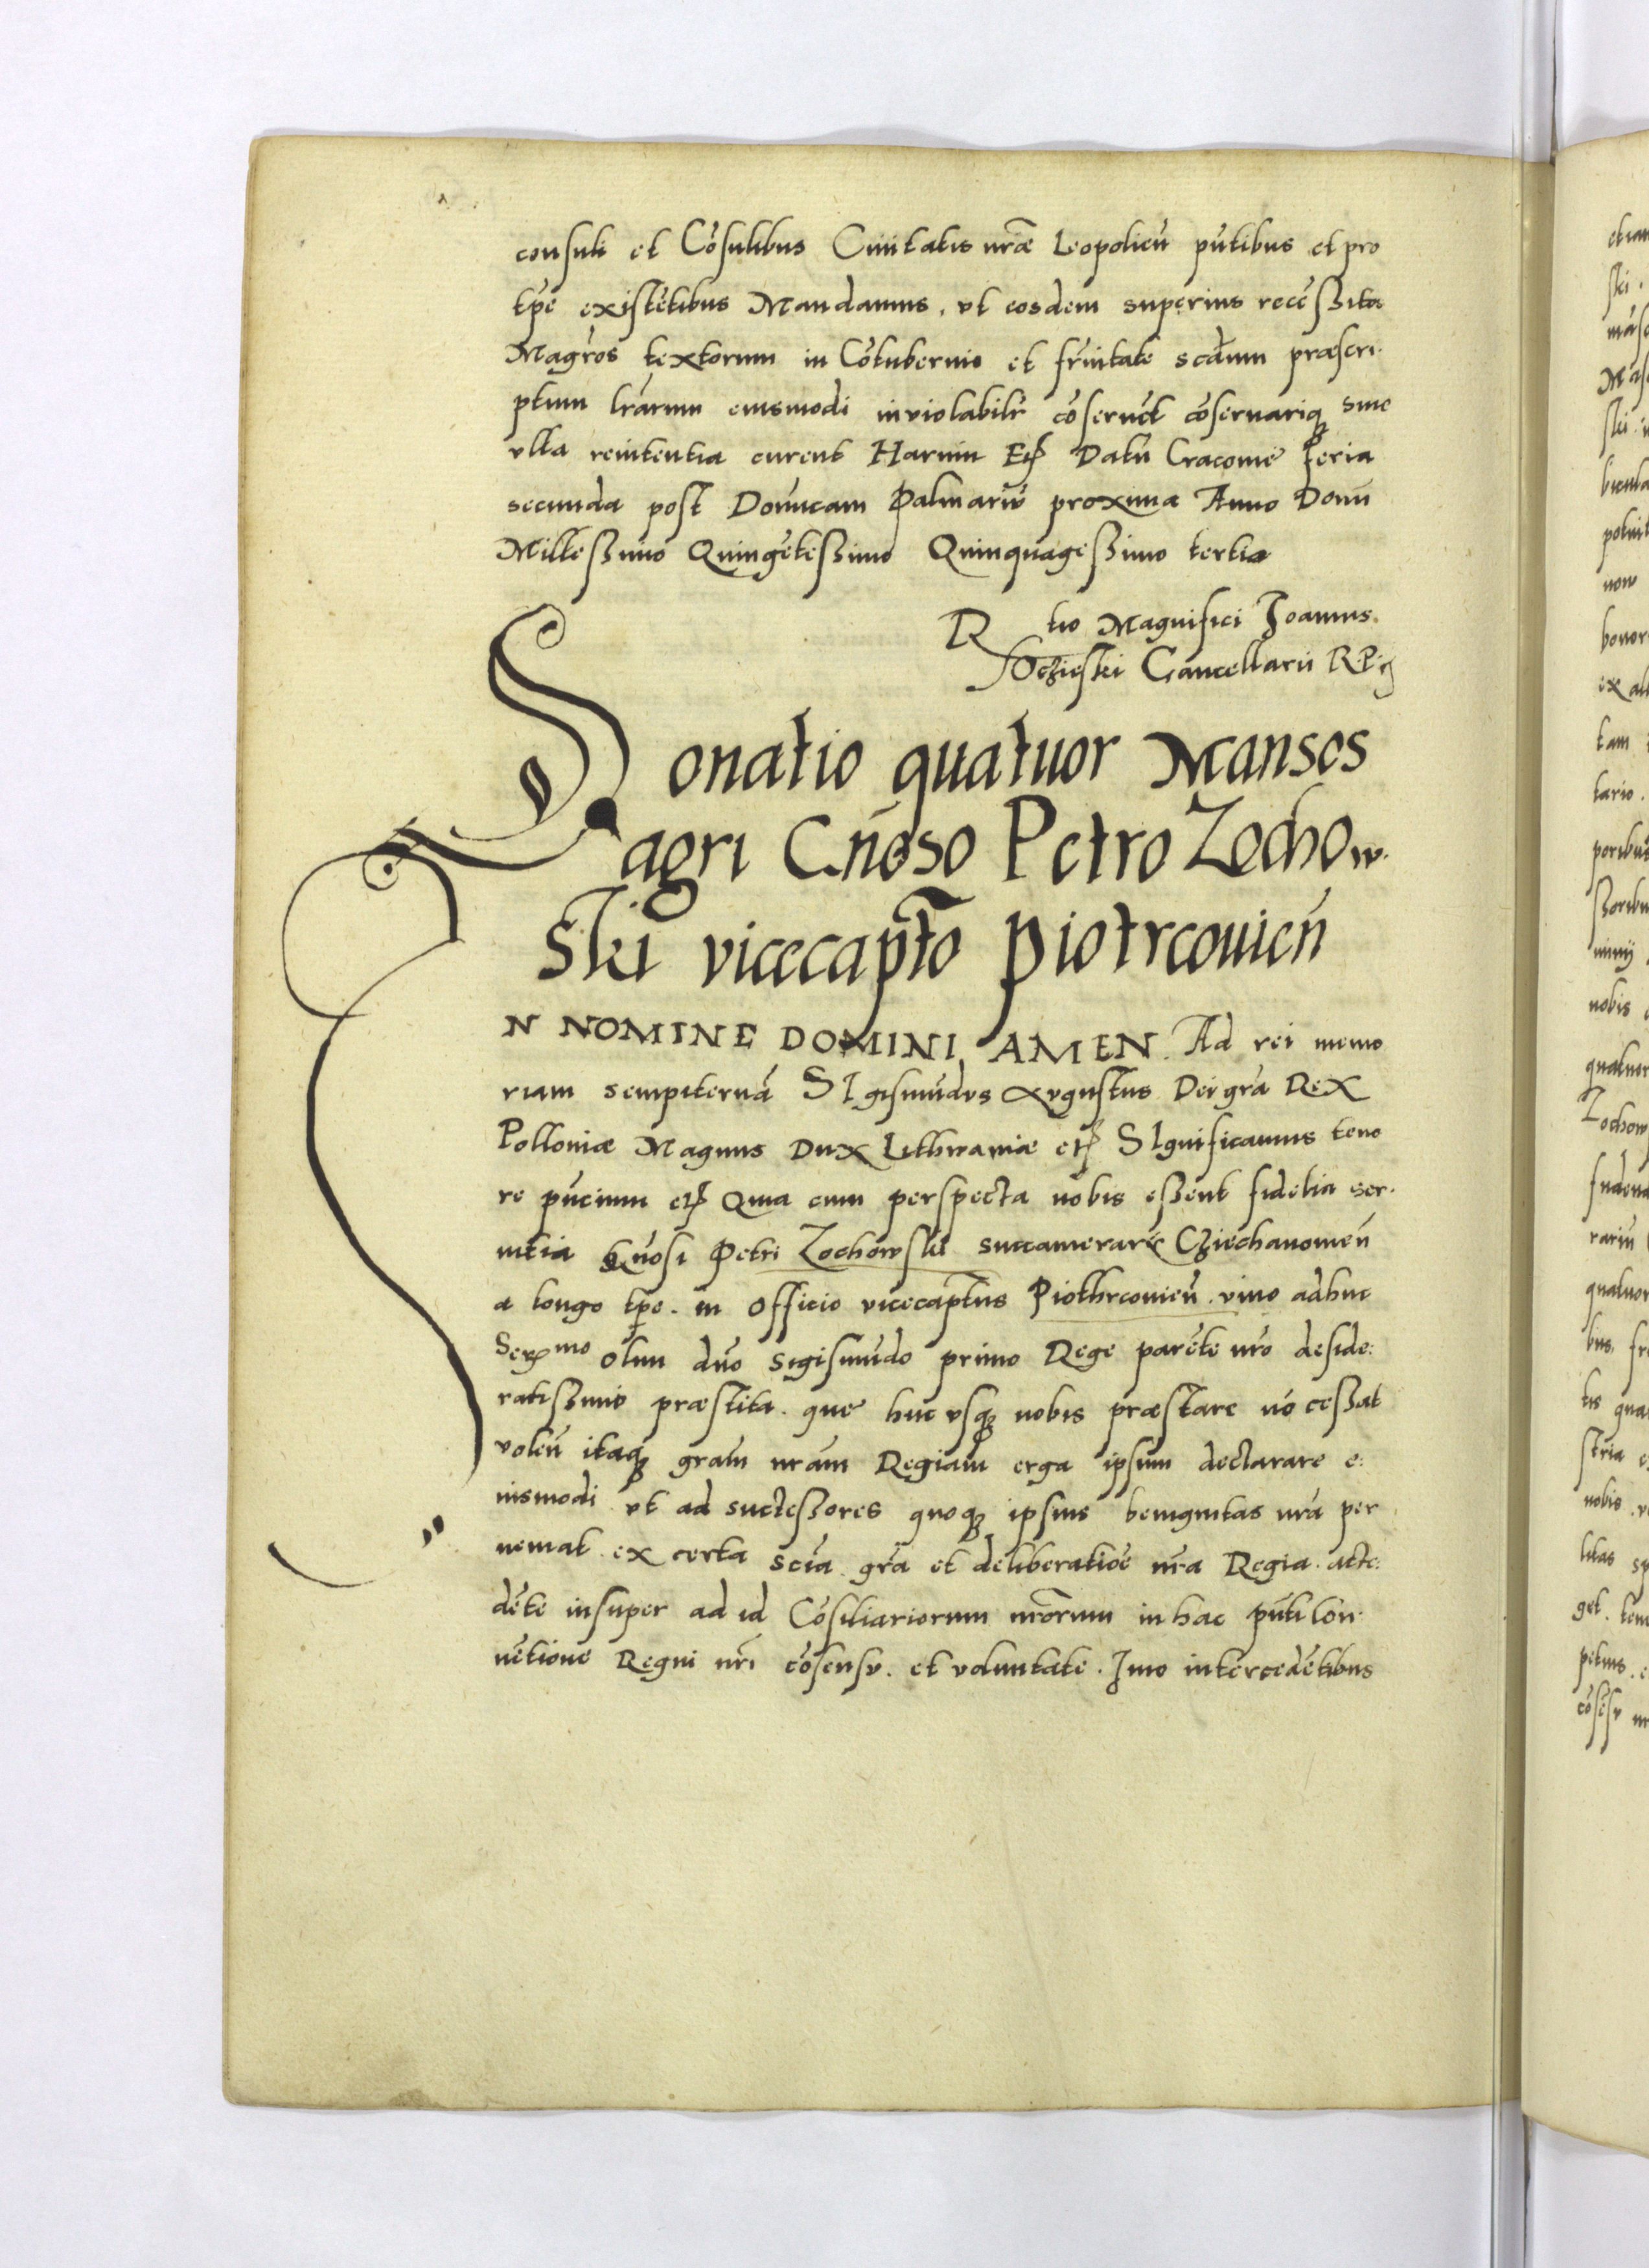 consuli et Cōsulibus Ciuitatis nr̄æ Leopolieñ pn̄tibus et pro
tp̄e existētibus Mandamus, vt eosdem superius recēszita
Magr̄os textorum in Cōtubernio et fr̄nitate scd̄um præscri-
ptum lr̄arum eiusmodi inviolabilr̄ cōseruēt cōseruariq̨ sine
vlla renitentia curent Harum Etc̨ Datū Cracouie Feria
secunda post Domīcam Palmarū proxima Anno Domī
Milleszimo Quingēteszimo Quinquageszimo tertio
R tio Magnifici Joannis
Oczieski Cancellarii R. P. etc̨
Donatio quatuor Mansos
agri Gn̄eso Petro Zochow-
ski vicecapt̄o Piotrcouieñ
N NOMINE DOMINI AMEN. Ad rei memo
riam sempiternā SIgismūdvs Avgustus Dei gr̄a Rex
Polloniæ Magnus Dux Lithwaniæ etc̨ SIgnificamus teno
re pn̄cium etc̨ Quia cum perspecta nobis eszent fidelia ser-
uitia Gn̄osi Petri Zochowski succamerarii Cziechanouieñ
a longo tp̄e. in officio vicecapt̄us Piothrcouieñ. viuo adhuc
Serᵐᵒ olim dn̄o Sigismūdo primo Rege parēte nr̄o deside:
ratiszimo præstita. que huc vsq̨ nobis præstare nō ceszat
voleñ itaq̨ gram̄ nram̄ Regiam erga ipsum declarare e:
iusmodi vt ad succeszores quoq̨ ipsius benignitas nr̄a per
ueniat. ex certa scīa. gr̄a et deliberatiōe nr̄a Regia. acce:
dēte insuper ad id Cōsiliariorum nr̄orum in hac pn̄ti Con-
uētione Regni nr̄i cōsensv. et voluntate. Imo intercedētibus